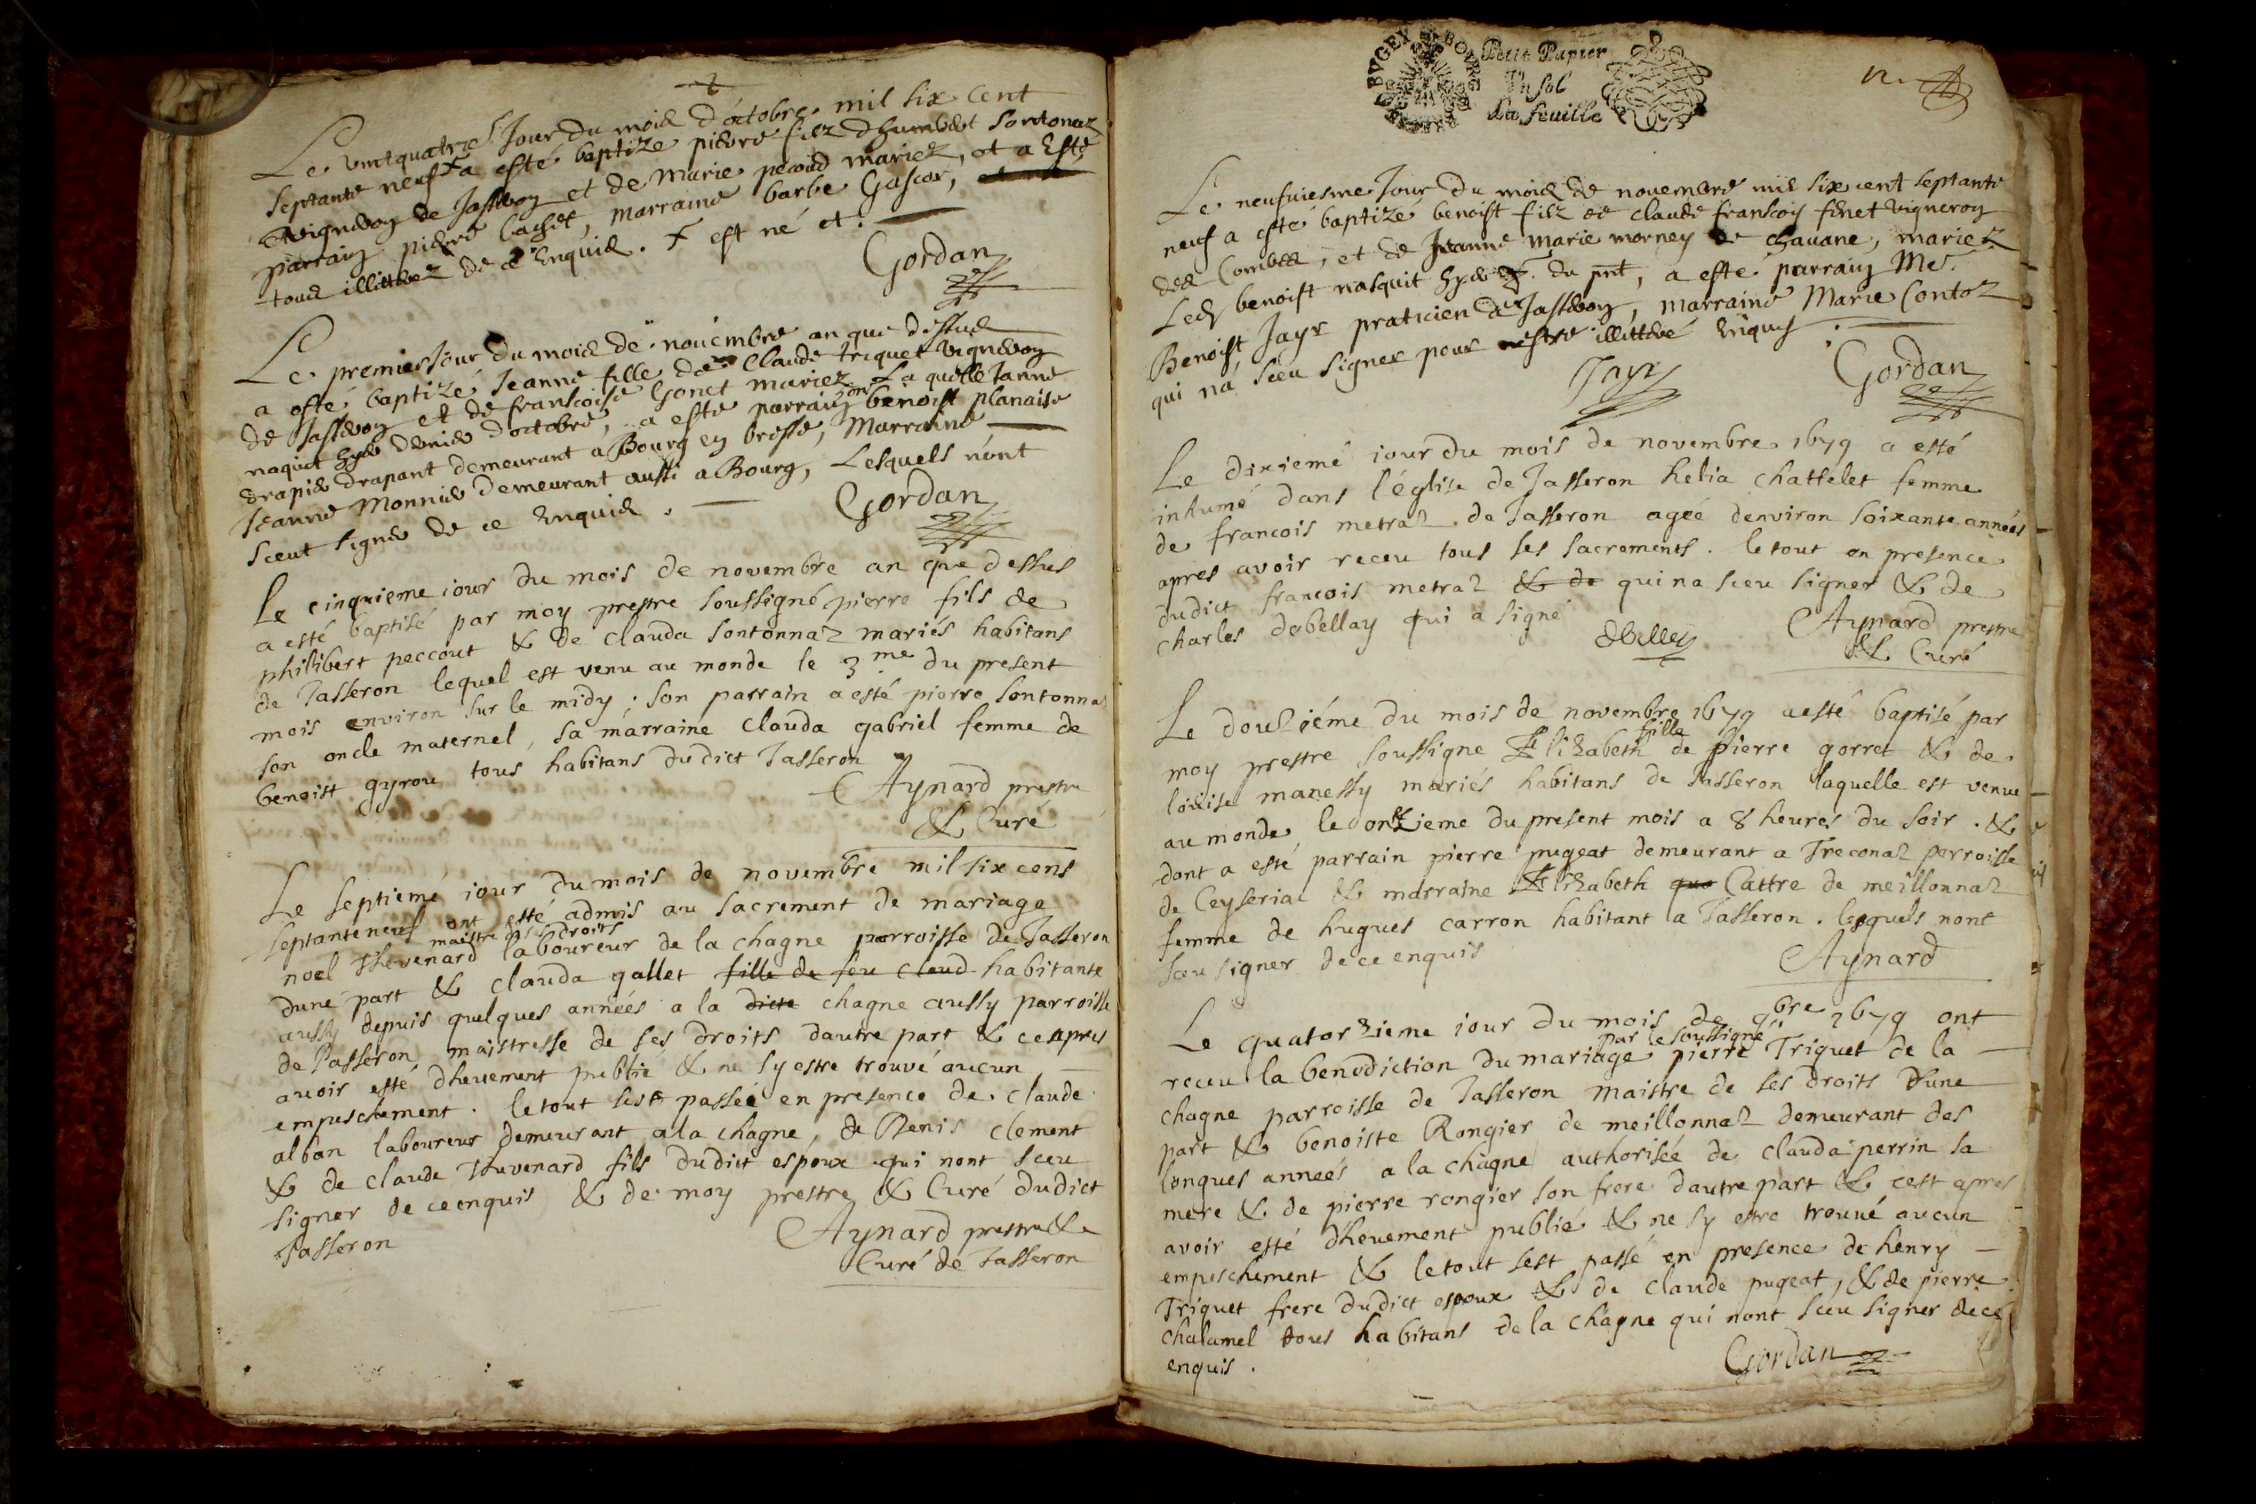 Le vintquatre Jour du mois d'octobre mil six cent
septante neuf + a esté baptizé pierre filz dhumbert sontonaz
vigneron de Jasseron et de Marie pecoud mariez, et a Esté
parrain pierre Cachet, marraine barbe Gascor,
tous illittrez de ce Enquis. + est né et.
Gordan
Le premier Jour du mois de novembre an que dessus
a esté baptizé Jeanne fille de Claude triquet vigneron
de Jasseron et de francoise Gonet mariez La quelle Janne
naquit hyer dernier d'octobre, a esté parrain son benoist planaise
drapier drapant demeurant a Bourg en bresse, Marraine
Jeanne Monnier demeurant aussi a Bourg, Lesquels n'ont
sceut signer de ce Enquis.
Gordan
Le cinquieme iour du mois de novembre an que dessus
a esté baptisé par moy prestre soussigné pierre fils de
philibert peccout & de clauda sontonnaz mariés habitans
de Jasseron lequel est venu au monde le 3me du present
mois environ sur le midy; son parrain a esté pierre sontonna
son oncle maternel, sa marraine clauda gabriel femme de
benoist gyrou tous habitans dudict Jasseron
Aynard prestre
& Curé
Le septiemé iour du mois de novembre mil six cens
septante neuf ont esté admis au sacrement de mariage
noel thevenard maistre de ses droits laboureur de la chagne parroisse de Jasseron
dune part & clauda gallet fille de feu claud habitante
aussy depuis quelques années a la dicte chagne aussy parroisse
de Jasseron, maistresse de ses droits dautre part & ce apres
avoir esté dheuement publié & ne sy estre trouvé aucun
empeschement. le tout sest passée en presence de claude
alban laboureur demeurant a la chagne, de Denis clement
& de claude thuvenard fils dudict espoux qui nont sceu
signer de ce enquis & de moy prestre & Curé dudict
Jasseron
Aynard prestre &
Curé de Jasseron
BVGEY BOVRG
Petit Papier
Vn sol
La feuille
Le neufuiesme Jour du mois de novembre mil six cent septante
neuf a esté baptizé benoist filz de claude francois finet vigneron
des Combes, et de Jeanne Marie morney de chavane, mariez
Led benoist nasquit hyer du pnt, a esté parrain Me
Benoist Jayr praticien de Jasseron, marraine Marie Contoz
qui n'a sceu signer pour estre illittré Enquis.
Jayr
Gordan
Le dixiemé iour du mois de novembre 1679 a esté
inhumé dans l'église de Jasseron helia chattelet femme
de francois metraz de Jasseron agée denviron soixante années
apres avoir receu tous ses sacrements. le tout en presence
dudict francois metraz & de qui na sceu signer & de
charles debellay qui a signé
debelley
Aynard prestre
& Curé
Le douziéme du mois de novembre 1679 a esté baptisé par
moy prestre soussigne Elizabeth fille de pierre gorret & de
loüise manessy mariés habitans de Jasseron laquelle est venue
au monde le onzieme du present mois a 8 heures du soir. &
dont a esté parrain pierre pugeat demeurant a Treconaz parroisse
de Ceyseria & marraine Elizabeth Cattre de meillonnaz
femme de hugues carron habitant a Jasseron. lesquels nont
sceu signer de ce enquis
Aynard
Le quatorzieme iour du mois de 9bre 1679 ont
receu la benediction du mariage par le soussigné pierre Triquet de la
chagne parroisse de Jasseron maistre de ses droits dune
part & benoiste Rongier de meillonnaz demeurant des
longues années a la chagne authorisée de clauda perrin sa
mere & de pierre rongier son frere dautre part & cest apres
avoir esté dheuement publié & ne sy estre trouué aucun
empeschement & le tout sest passé en presence de henry
Triquet frere dudict espoux & de claude pugeat, & de pierre
chalamel tous habitans de la chagne qui nont sceu signer de ce
enquis.
Gordan